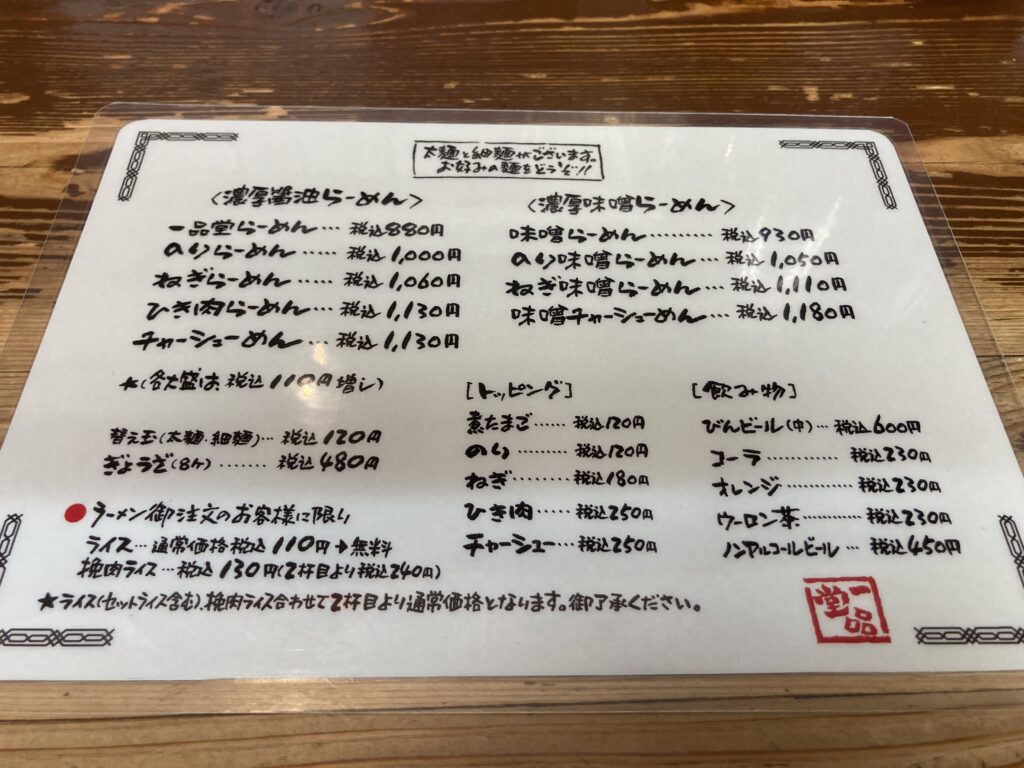 太麺と細麺がございます。
お好みの麺をどうぞ!!
〈濃厚醤油らーめん〉
一品堂らーめん… 税込880円
のりらーめん…… 税込1,000円
ねぎらーめん…… 税込1,060円
ひき肉らーめん… 税込1,130円
チャーシューめん… 税込1,130円
★(各大盛は、税込110円増し)
替え玉(太麺・細麺)… 税込120円
ぎょうざ(8ヶ)……… 税込480円
〈濃厚味噌らーめん〉
味噌らーめん……… 税込930円
のり味噌らーめん… 税込1,050円
ねぎ味噌らーめん… 税込1,110円
味噌チャーシューめん… 税込1,180円
[トッピング]
煮たまご…… 税込120円
のり……… 税込120円
ねぎ……… 税込180円
ひき肉…… 税込250円
チャーシュー… 税込250円
[飲み物]
びんビール(中)… 税込600円
コーラ………… 税込230円
オレンジ……… 税込230円
ウーロン茶……… 税込230円
ノンアルコールビール… 税込450円
●ラーメン御注文のお客様に限り
ライス…通常価格税込110円→無料
挽肉ライス…税込130円(2杯目より税込240円)
★ライス(セットライス含む)、挽肉ライス合わせて2杯目より通常価格となります。御了承ください。
一品堂